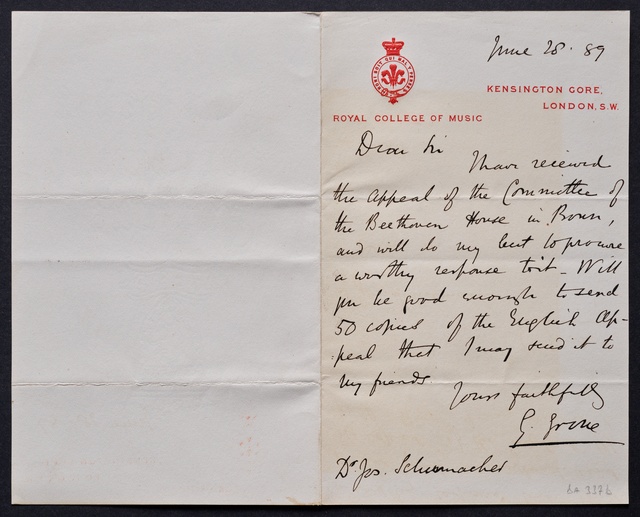 June 28. 89
HONI SOIT QUI MAL Y PENSE
KENSINGTON GORE,
LONDON, S.W.
ROYAL COLLEGE OF MUSIC
Dear Sir
I have received
the Appeal of the Committee of
the Beethoven House in Bonn,
and will do my best to procure
a worthy response to it – Will
you be good enough to send
50 copies of the English Ap-
-peal that I may send it to
my friends
Yours faithfully
G. Grove
Dr Jos. Schumacher